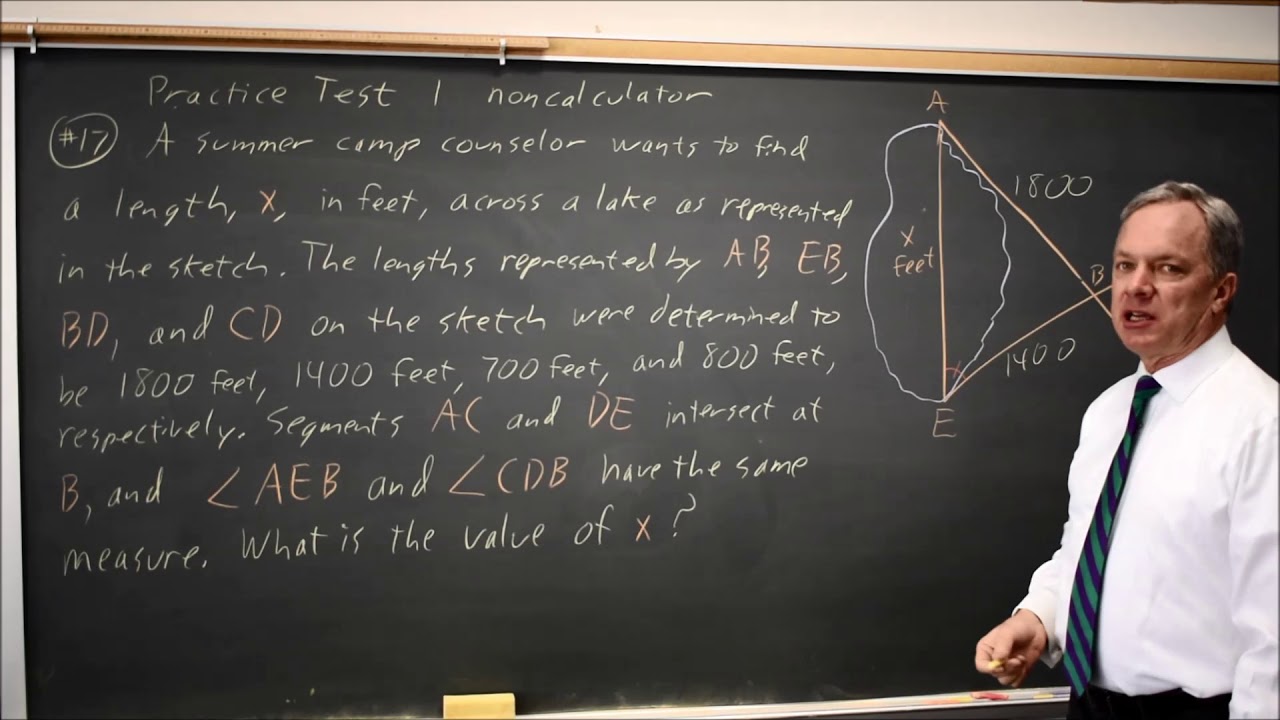 Practice Test 1 noncalculator
#17 A summer camp counselor wants to find
a length, x, in feet, across a lake as represented
in the sketch. The lengths represented by AB, EB,
BD, and CD on the sketch were determined to
be 1800 feet, 1400 feet, 700 feet, and 800 feet,
respectively. Segments AC and DE intersect at
B, and ∠AEB and ∠CDB have the same
measure. What is the value of x?
A
1800
x
feet
B
1400
x
E